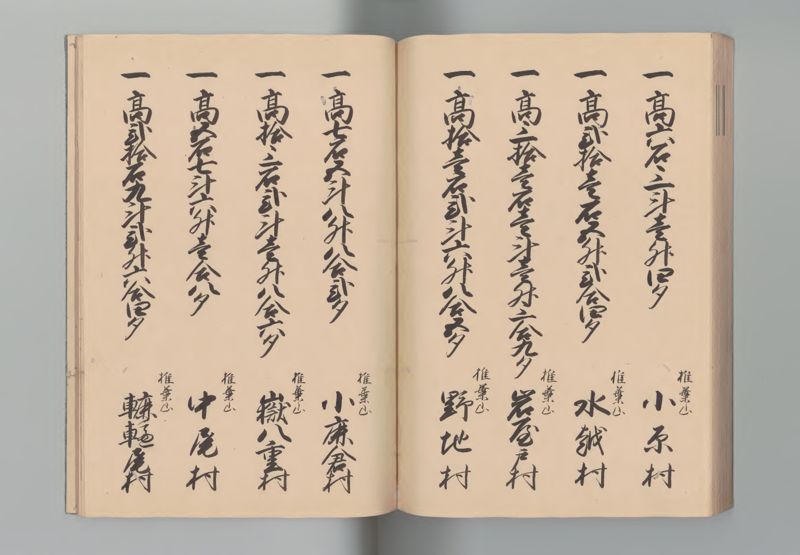 一 高六石三斗壱升四夕
椎葉山
小原村
一 高弐拾壱石五升弐合四夕
椎葉山
水越村
一 高三拾壱石壱斗壱升三合九夕
椎葉山
岩屋戸村
一 高拾壱石弐斗六升八合五夕
椎葉山
野地村
一 高七石五斗八升八合弐夕
椎葉山
小麻倉村
一 高拾三石弐斗壱升八合六夕
椎葉山
嶽八重村
一 高五石七斗六升壱合八夕
椎葉山
中尾村
一 高弐拾石九斗弐升六合四夕
椎葉山
尾村